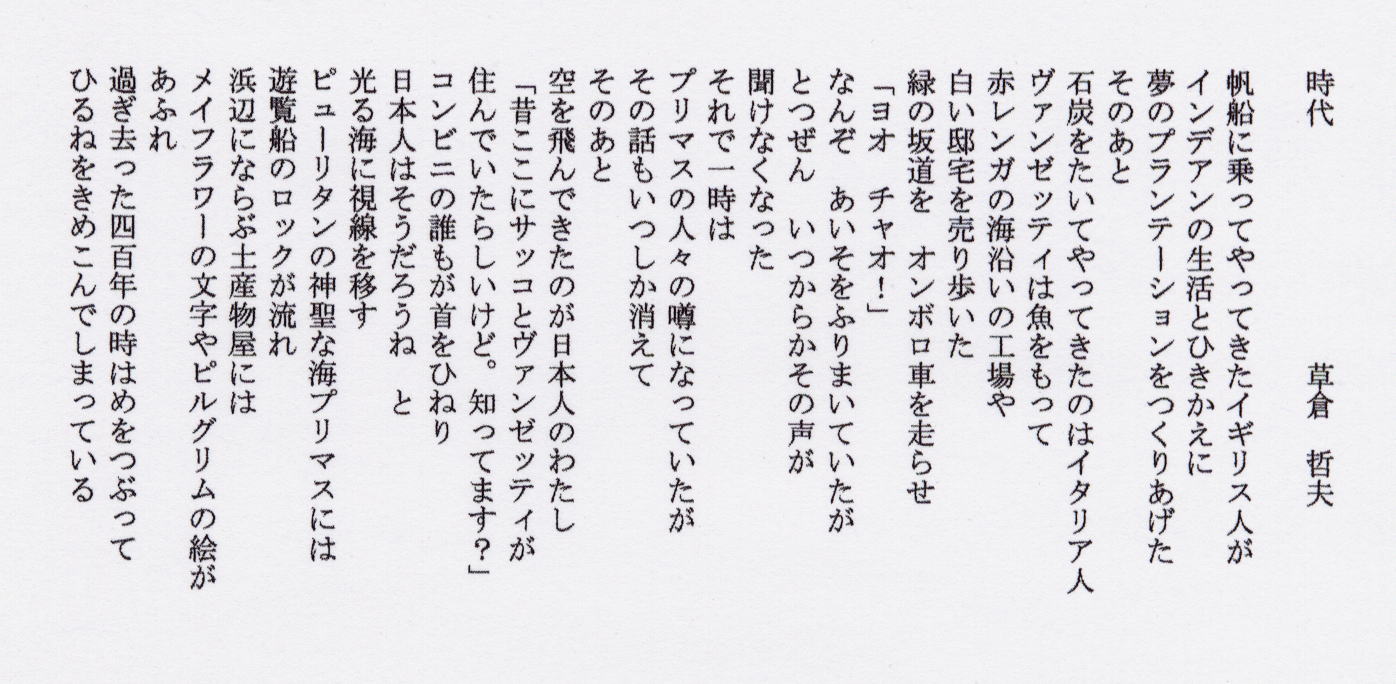 時代　　　　　　　　草倉　哲夫
帆船に乗ってやってきたイギリス人が
インデアンの生活とひきかえに
夢のプランテーションをつくりあげた
そのあと
石炭をたいてやってきたのはイタリア人
ヴァンゼッティは魚をもって
赤レンガの海沿いの工場や
白い邸宅を売り歩いた
緑の坂道を　オンボロ車を走らせ
「ヨオ　チャオ！」
なんぞ　あいそをふりまいていたが
とつぜん　いつからかその声が
聞けなくなった
それで一時は
プリマスの人々の噂になっていたが
その話もいつしか消えて
そのあと
空を飛んできたのが日本人のわたし
「昔ここにサッコとヴァンゼッティが
住んでいたらしいけど。知ってます？」
コンビニの誰もが首をひねり
日本人はそうだろうね　と
光る海に視線を移す
ピューリタンの神聖な海プリマスには
遊覧船のロックが流れ
浜辺にならぶ土産物屋には
メイフラワーの文字やピルグリムの絵が
あふれ
過ぎ去った四百年の時はめをつぶって
ひるねをきめこんでしまっている